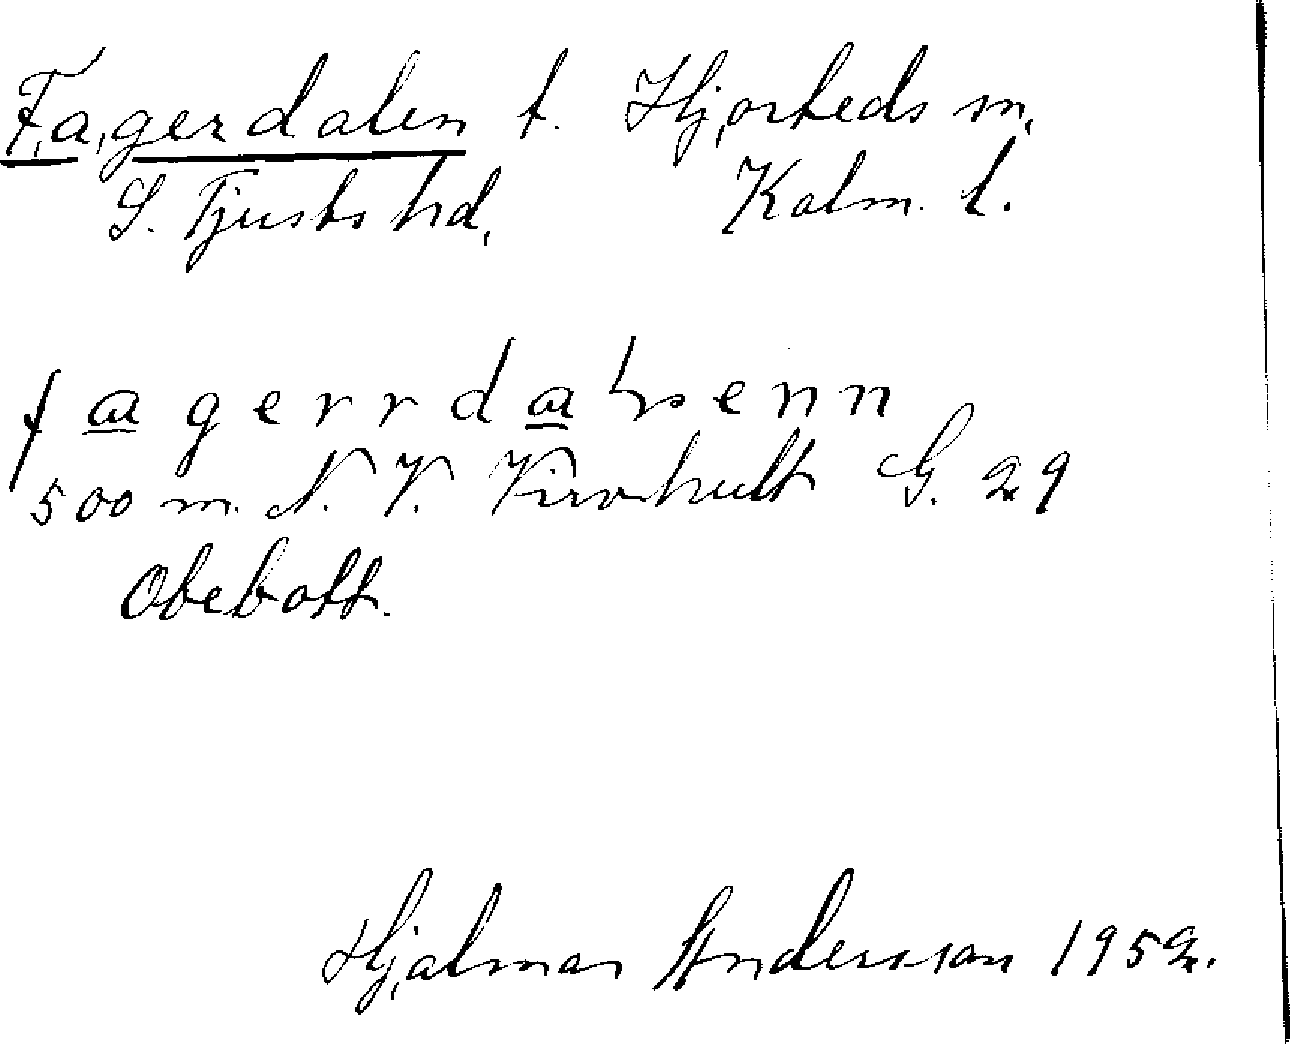 Fagerdalen t. Hjorteds sn,
S. Tjusts hd, Kalm. l.
500 m. N. V. Virohult G. 29
Obebott.
Hjalmar Andersson 1952.